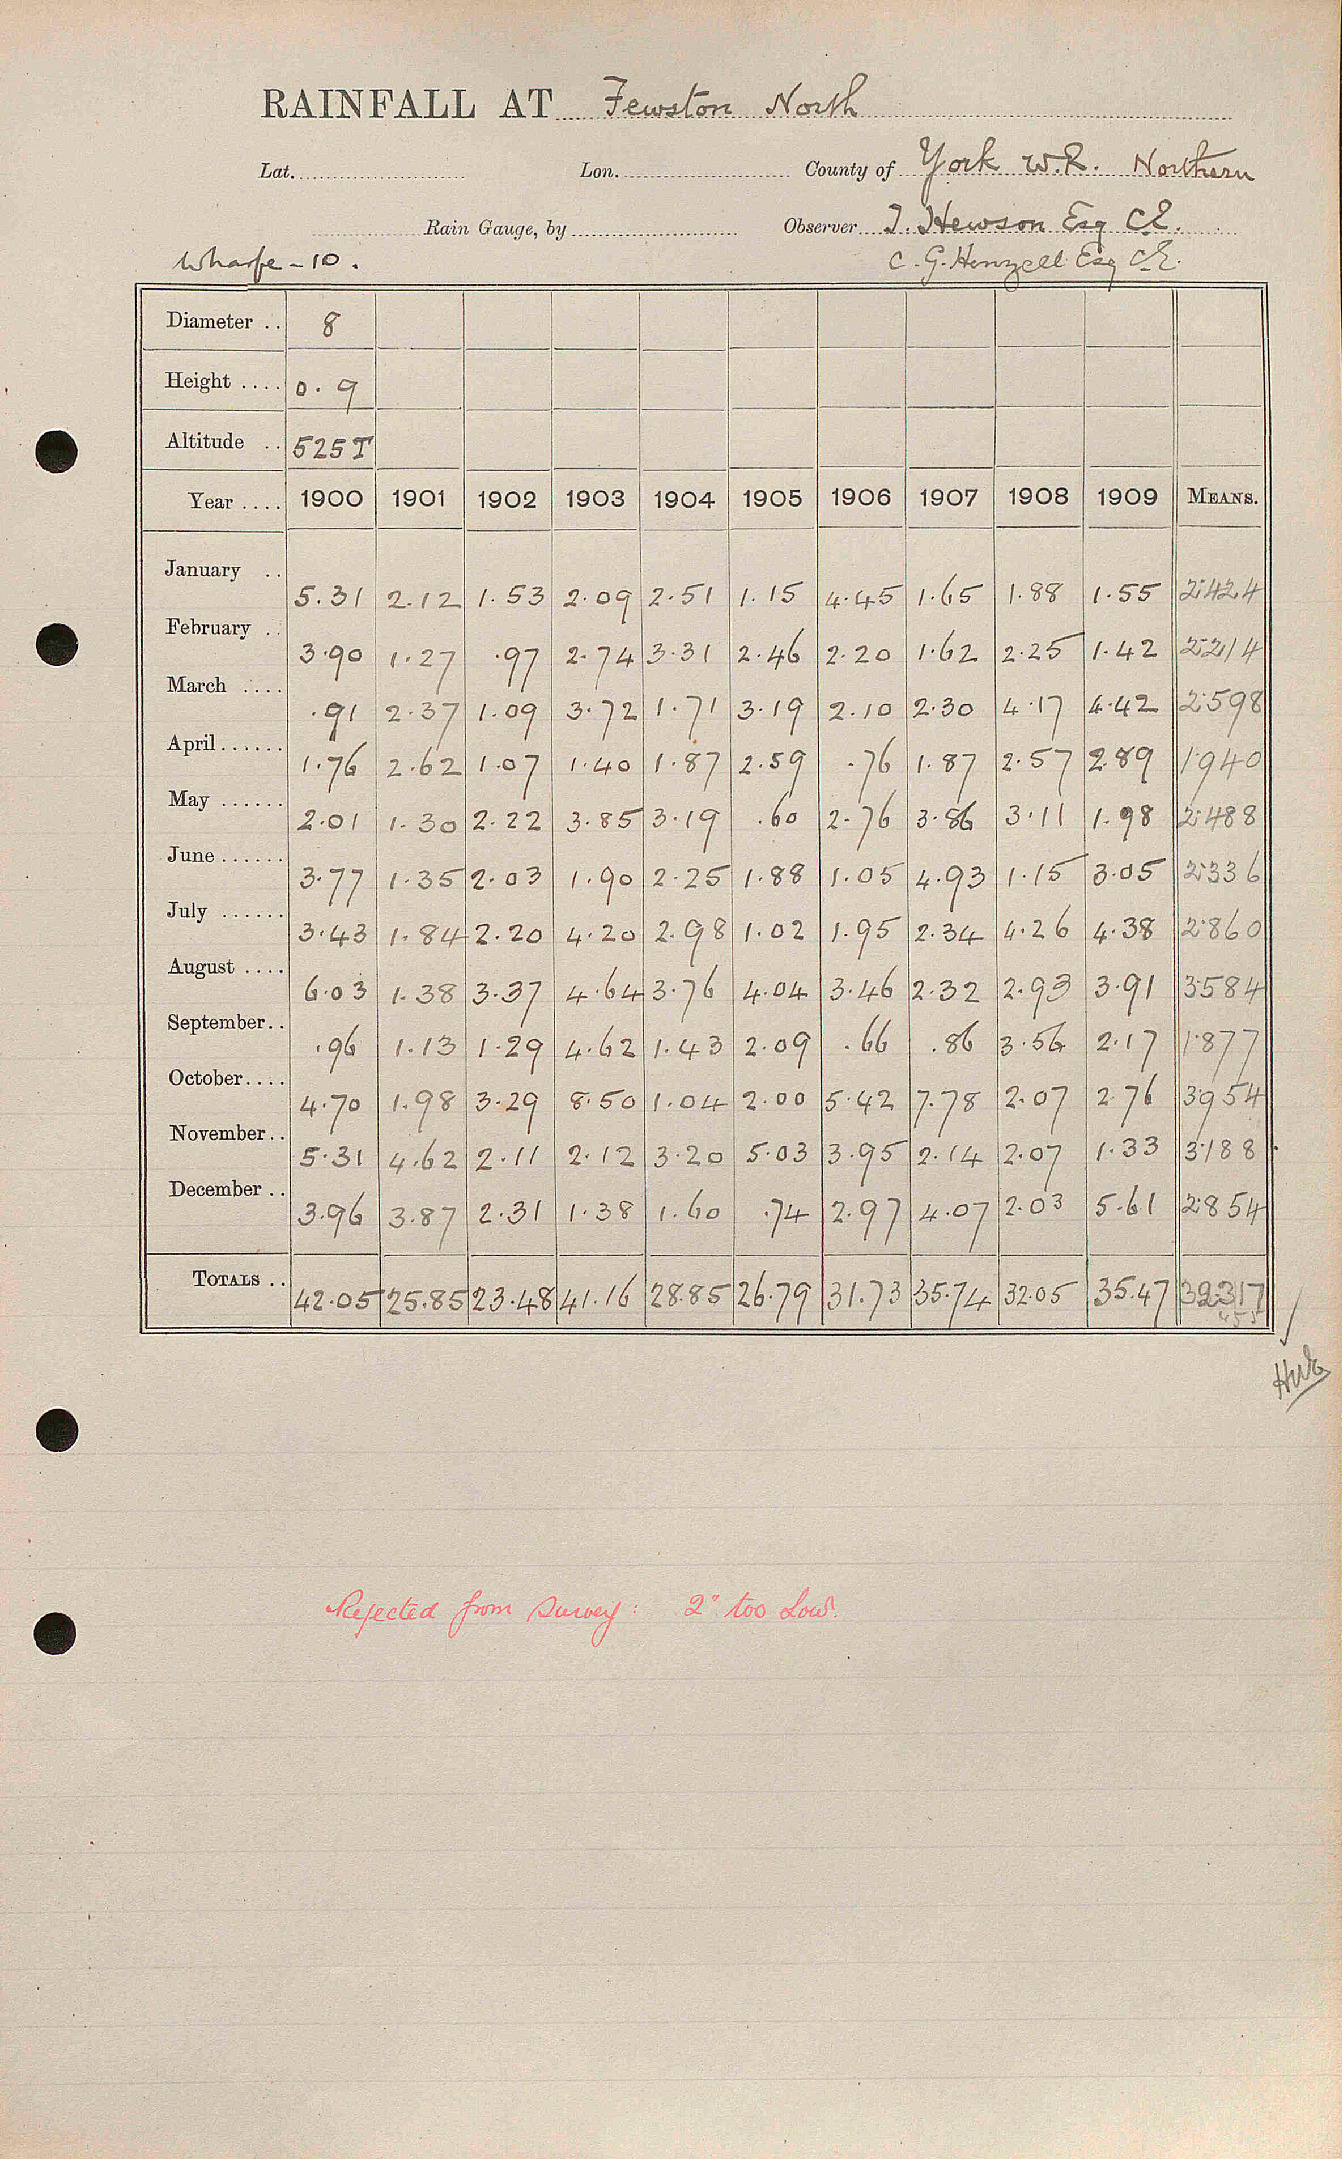 RAINFALL AT Fewston North
Lat. Lon. County of York W.R. Northern
Rain Gauge, by Observer T. Hewson Esq C.E.
Wharfe - 10. C. G. Henzell Esq C.E.
Diameter .. 8
Height .... 0.9
Altitude .. 525 T
Year .... 1900 1901 1902 1903 1904 1905 1906 1907 1908 1909 MEANS.
January .. 5.31 2.12 1.53 2.09 2.51 1.15 4.45 1.65 1.88 1.55 2.424
February .. 3.90 1.27 .97 2.74 3.31 2.46 2.20 1.62 2.25 1.42 2.214
March .... .91 2.37 1.09 3.72 1.71 3.19 2.10 2.30 4.17 4.42 2.598
April ...... 1.76 2.62 1.07 1.40 1.87 2.59 .76 1.87 2.57 2.89 1.940
May ...... 2.01 1.30 2.22 3.85 3.19 .60 2.76 3.86 3.11 1.98 2.488
June ...... 3.77 1.35 2.03 1.90 2.25 1.88 1.05 4.93 1.15 3.05 2.336
July ...... 3.43 1.84 2.20 4.20 2.98 1.02 1.95 2.34 4.26 4.38 2.860
August .... 6.03 1.38 3.37 4.64 3.76 4.04 3.46 2.32 2.93 3.91 3.584
September.. .96 1.13 1.29 4.62 1.43 2.09 .66 .86 3.56 2.17 1.877
October.... 4.70 1.98 3.29 8.50 1.04 2.00 5.42 7.78 2.07 2.76 3.954
November.. 5.31 4.62 2.11 2.12 3.20 5.03 3.95 2.14 2.07 1.33 3.188
December .. 3.96 3.87 2.31 1.38 1.60 .74 2.97 4.07 2.03 5.61 2.854
TOTALS .. 42.05 25.85 23.48 41.16 28.85 26.79 31.73 35.74 32.05 35.47 32.317
Rejected from survey: 2" too low.